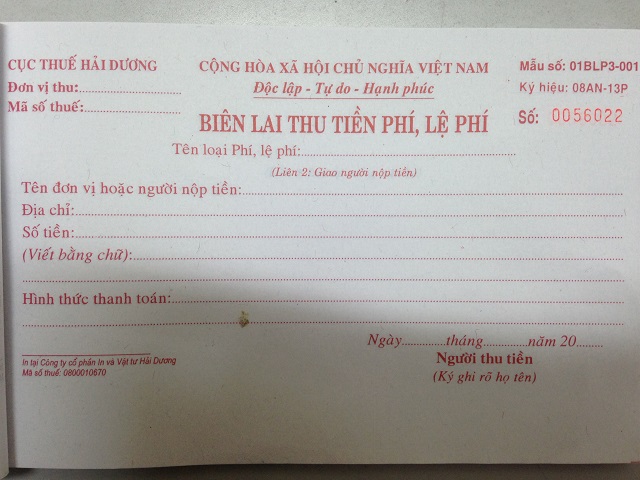 CỤC THUẾ HẢI DƯƠNG
Đơn vị thu:
Mã số thuế:
CỘNG HÒA XÃ HỘI CHỦ NGHĨA VIỆT NAM
Độc lập - Tự do - Hạnh phúc
Mẫu số: 01BLP3-001
Ký hiệu: 08AN-13P
Số: 0056022
BIÊN LAI THU TIỀN PHÍ, LỆ PHÍ
Tên loại Phí, lệ phí:
(Liên 2: Giao người nộp tiền)
Tên đơn vị hoặc người nộp tiền:
Địa chỉ:
Số tiền:
(Viết bằng chữ):
Hình thức thanh toán:
Ngày.............tháng.............năm 20........
Người thu tiền
(Ký ghi rõ họ tên)
In tại Công ty cổ phần In và Vật tư Hải Dương
Mã số thuế: 0800010670